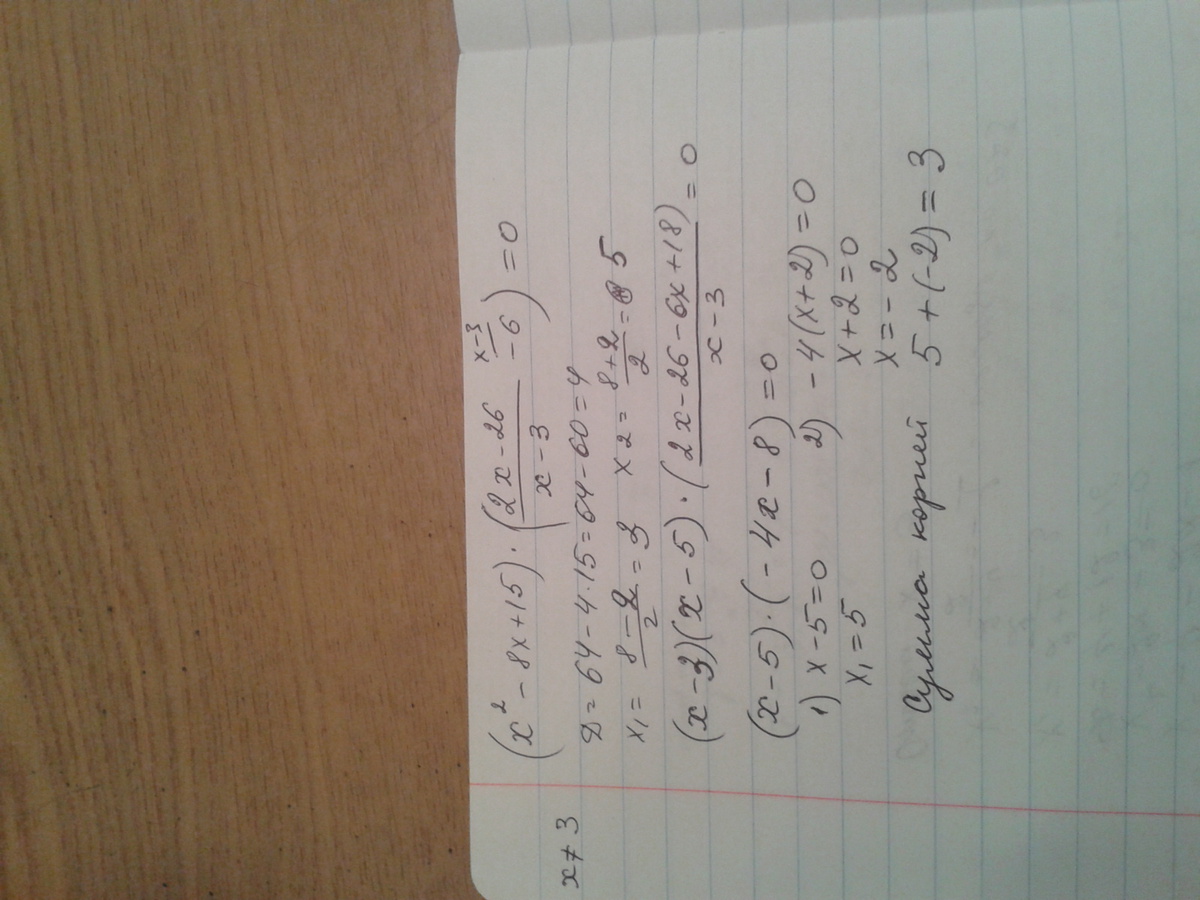 (x² - 8x + 15) · ((2x - 26)/(x - 3) - 6) = 0
x - 3
x ≠ 3
D = 64 - 4 · 15 = 64 - 60 = 4
x₁ = (8 - 2)/2 = 3 x2 = (8 + 2)/2 = 5
(x - 3)(x - 5) · (2x - 26 - 6x + 18)/(x - 3) = 0
(x - 5) · (-4x - 8) = 0
1) x - 5 = 0 2) -4(x + 2) = 0
x₁ = 5 x + 2 = 0
x = -2
Сумма корней 5 + (-2) = 3